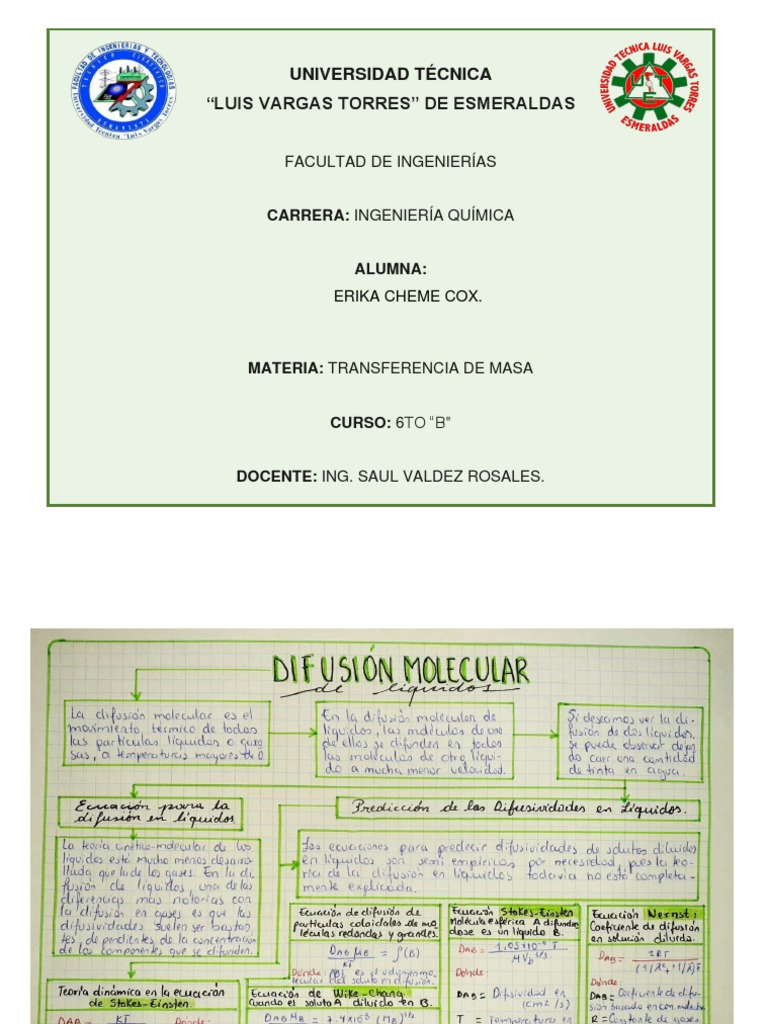 FACULTAD DE INGENIERIAS Y TECNOLOGIAS
Universidad Técnica "Luis Vargas Torres"
UNIVERSIDAD TECNICA LUIS VARGAS TORRES
ESMERALDAS
UNIVERSIDAD TÉCNICA
“LUIS VARGAS TORRES” DE ESMERALDAS
FACULTAD DE INGENIERÍAS
CARRERA: INGENIERÍA QUÍMICA
ALUMNA:
ERIKA CHEME COX.
MATERIA: TRANSFERENCIA DE MASA
CURSO: 6TO “B"
DOCENTE: ING. SAUL VALDEZ ROSALES.
DIFUSIÓN MOLECULAR
de líquidos
La difusión molecular es el
movimiento térmico de todas
las partículas líquidas o gaseo
sas, a temperaturas mayores de 0.
En la difusión molecular de
líquidos, las moléculas de uno
de ellos se difunden en todas
las moléculas de otro líqui
do a mucha menor velocidad.
Si deseamos ver la di-
fusión de dos líquidos,
se puede observar dejan
do caer una cantidad
de tinta en agua.
Ecuación para la
difusión en líquidos.
Predicción de las Difusividades en Líquidos.
La teoría cinético-molecular de los
líquidos está mucho menos desarro-
llada que la de los gases. En la di-
fusión de líquidos, una de las
diferencias más notorias con
la difusión en gases es que las
difusividades suelen ser bastan-
tes, dependientes de la concentración
de los componentes que se difunden.
Las ecuaciones para predecir difusividades de solutos diluidos
en líquidos son semi empíricas por necesidad, pues la teo-
ría de la difusión en líquidos todavía no está completa-
mente explicada.
Ecuación de difusión de
partículas coloidales de mo
léculas redondas y grandes.
DAB μB / KT = f(B)
Donde:
Ecuación Stokes-Einsten
Molécula esférica A difunden
dose es un líquido B.
DAB =
Donde:
DAB = Difusividad en
(cm2/s)
T = Temperatura en
Ecuación Nernst:
Coeficiente de difusión
en solución diluida.
DAB =
Donde:
DAB = Coeficiente de difu-
sión basado en con
R = Constante de gases.
Teoría dinámica en la ecuación
de Stokes-Einsten
DAB KT Donde:
Ecuación de Wike-Chang
Cuando el soluto A diluido en B.